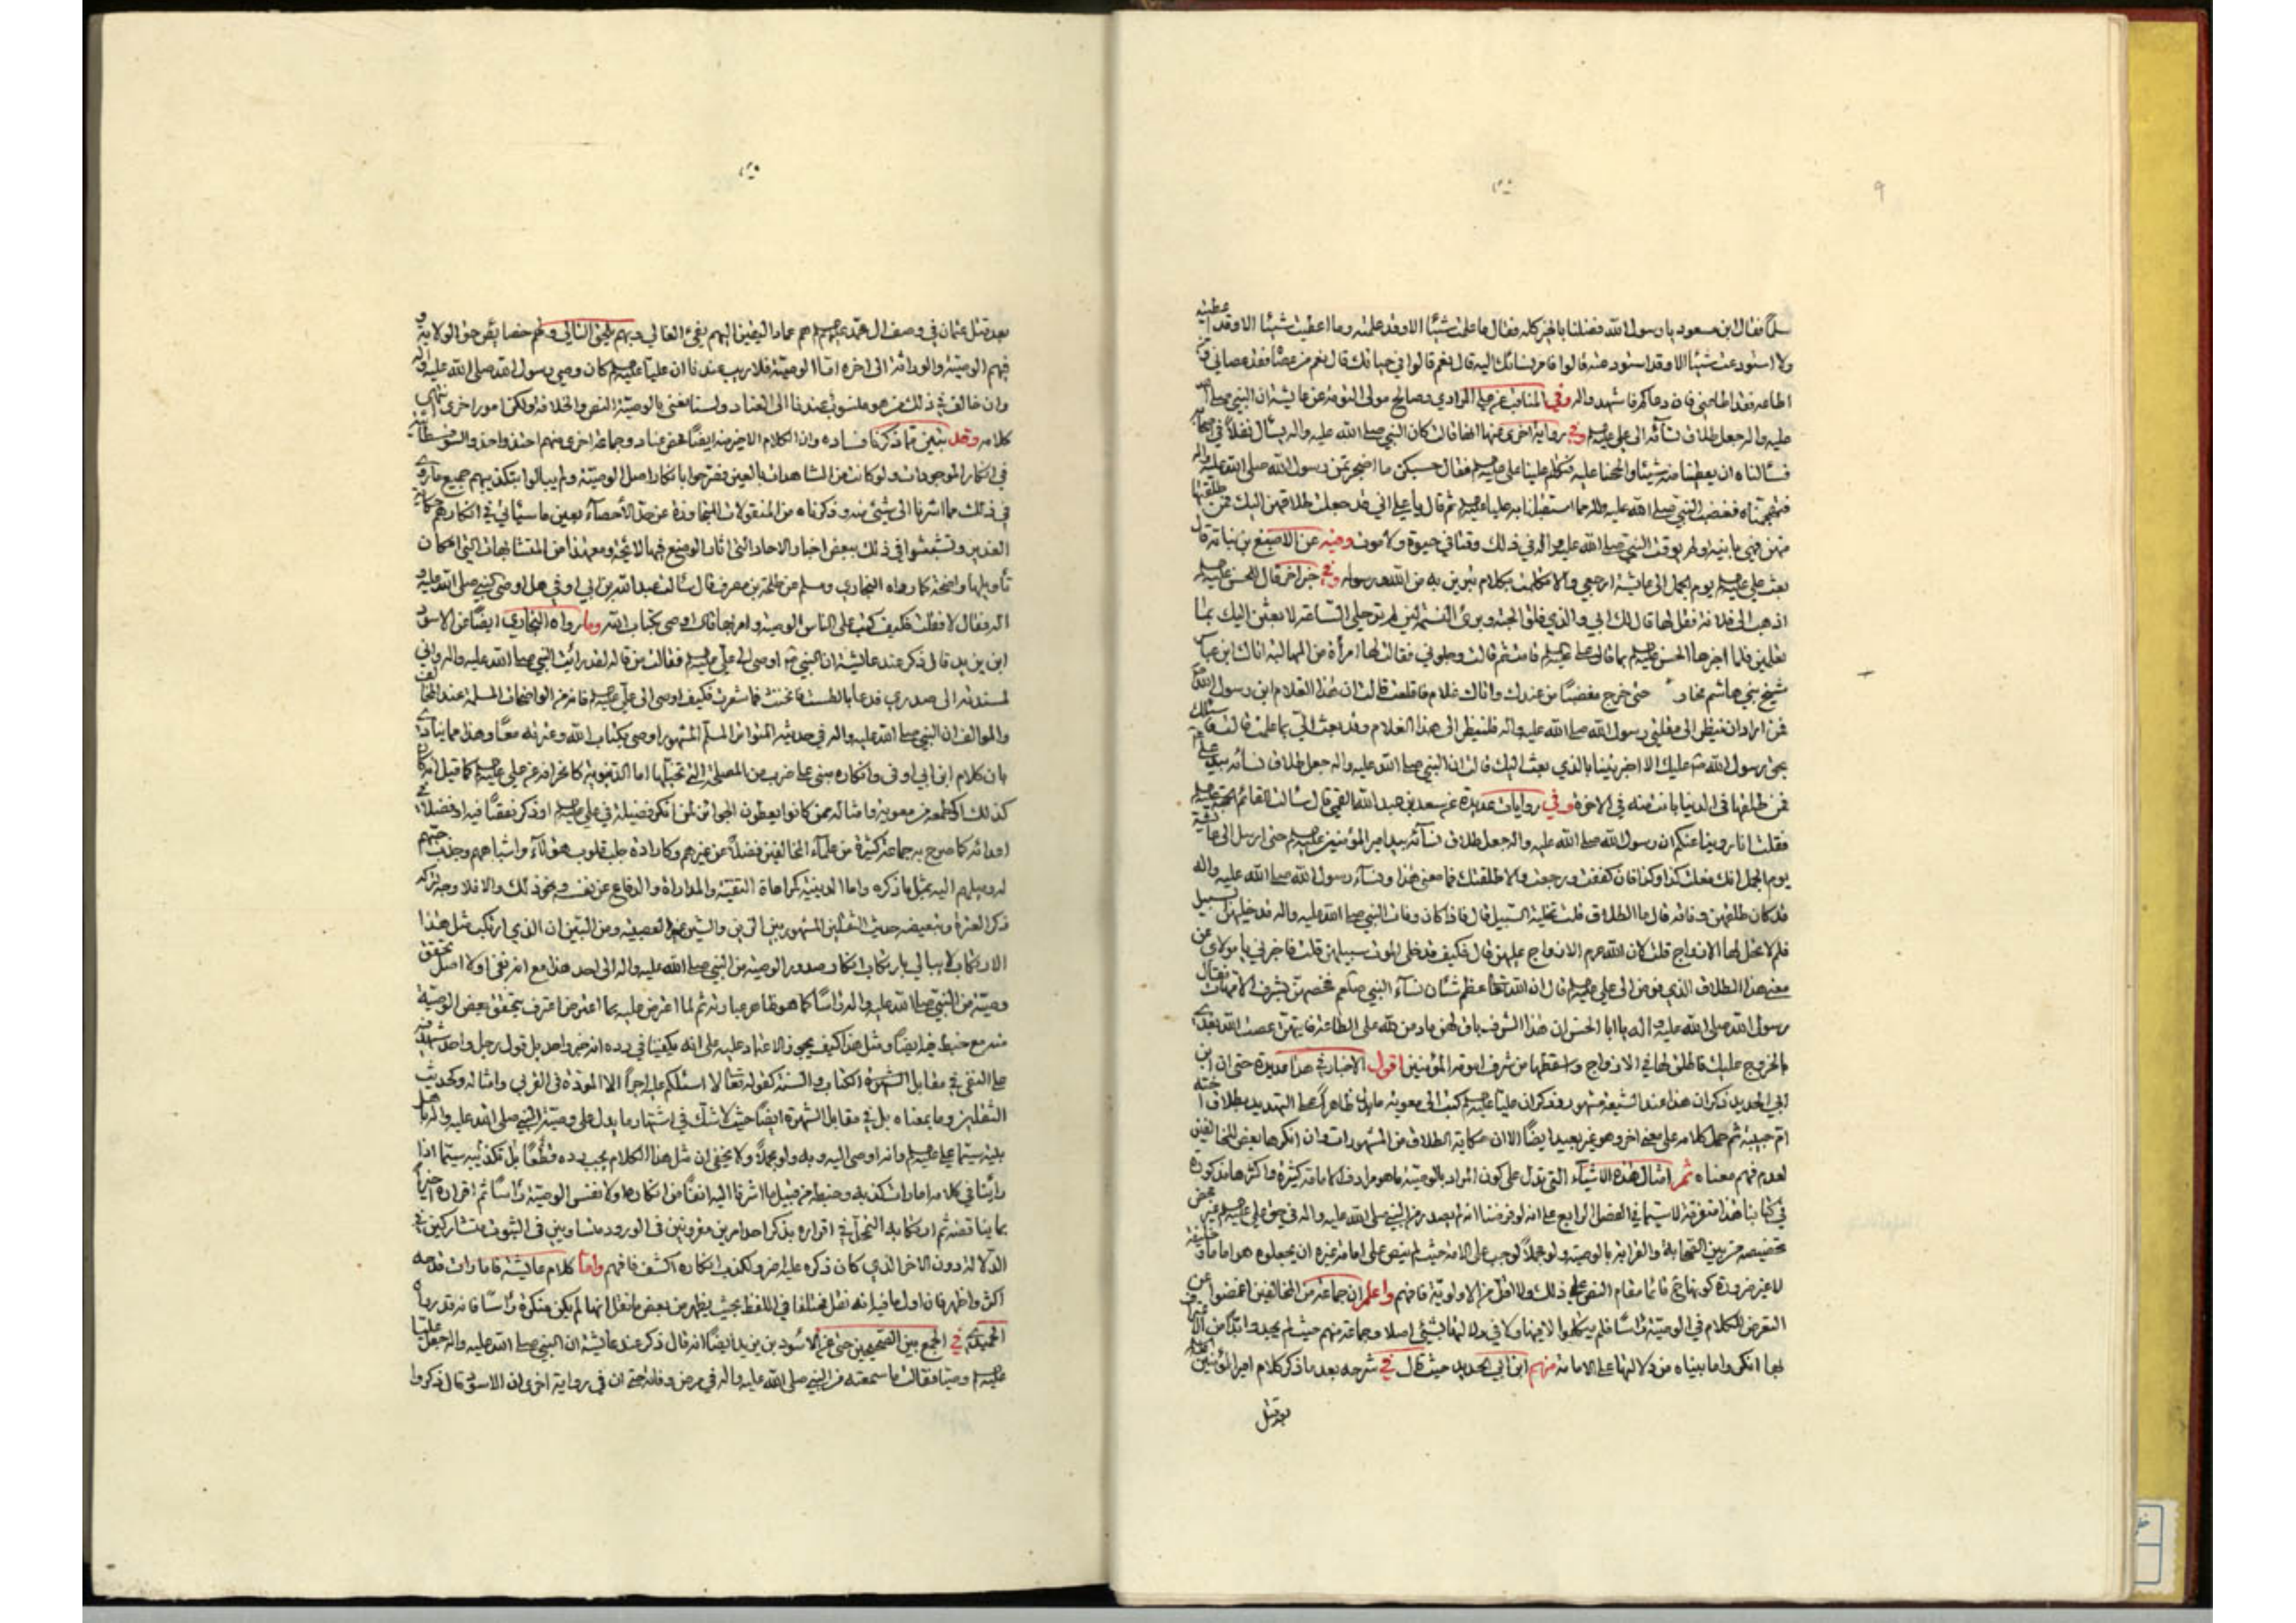 سلما فقال ابن مسعود يا رسول الله فضلنا بالخير كله فقال ما علمت شيئا الا وقد علمته وما اعطيت شيئا الا وقد اعطيته
ولا استودعت شيئا الا وقد استودعته قالوا فامر نسائك اليه قال نعم قالوا في حياتك قال نعم من عصاه فقد عصاني ومن
اطاعه فقد اطاعني فان دعاكم فاشهدوا وفي المناقب عن المرادي وصالح مولى التومة عن عايشة ان النبي صلى الله
عليه واله جعل طلاق نسائه الى علي وفي رواية اخرى عنها انها قالت كان النبي صلى الله عليه واله
فسالناه ان يعطينا منه شيئا والححنا عليه علي فقال حسبكن ما اضجرتن رسول الله صلى الله عليه واله
فغضب النبي صلى الله عليه واله مما استقبلنا به عليا ثم قال يا علي اني قد جعلت طلاقهن اليك فمن طلقتها
منهن فهي باينة ولم يوقت النبي صلى الله عليه واله في ذلك وقتا في حيوة ولا موت وفيه عن الاصبغ بن نباتة قال
بعث علي يوم الجمل الى عايشة ارجعي والا تكلمت بكلام تبرين به من الله ورسوله وفي خبر اخر قال للحسن
اذهب الى فلانة فقل لها قال لك ابي والذي فلق الحبة وبرئ النسمة لئن لم ترحلي الساعة لابعثن اليك بما
تعلمين فلما اخبرها الحسن بما قال قامت ثم قالت رحلوني فقالت لها امرأة من المهالبة اتاك ابن عباس
شيخ بني هاشم حتى خرج مغضبا من عندك واتاك غلام فاقلعت قالت ان هذا الغلام ابن رسول الله
فمن اراد ان ينظر الى مقلتي رسول الله صلى الله عليه واله فلينظر الى هذا الغلام وقد بعث الي بما علمت قالت
بحق رسول الله عليك الا اخبرتينا بالذي بعث اليك قالت ان النبي صلى الله عليه واله جعل طلاق نسائه بيد علي
فمن طلقها في الدنيا بانت منه في الاخرة وفي روايات عديدة عن سعد بن عبد الله القمي قال سالت القائم
فقلت انا روينا عنكم ان رسول الله صلى الله عليه واله جعل طلاق نسائه بيد امير المؤمنين حتى ارسل الى عايشة
يوم الجمل والا طلقتك فما معنى هذا ونساء رسول الله صلى الله عليه واله
قد كان طلقهن وفاته قال ما الطلاق قلت تخلية السبيل قال فاذا كان وفات النبي صلى الله عليه واله قد خلي لهن السبيل
فلم لا يحل لها الازواج قلت لان الله حرم الازواج عليهن قال فكيف وقد خلى الموت سبيلهن قلت فاخبرني يا مولاي عن
معنى هذا الطلاق الذي فوض الى علي قال ان الله تعالى عظم شان نساء النبي فخصهن بشرف الامهات فقال
رسول الله صلى الله عليه واله يا ابا الحسن ان هذا الشرف باق لهن ما دمن لله على الطاعة فايتهن عصت الله بعدي
بالخروج عليك فاطلق لها في الازواج واسقطها من شرف امومة المؤمنين اقول الاخبار في هذا عديدة حتى ان ابن
ابي الحديد ذكر ان هذا عند الشيعة مشهور وقد ذكر ان عليا كتب الى معوية على التهديد بطلاق اخته
ام حبيبة ثم حمل كلامه على معنى اخر وهو غير بعيد ايضا الا ان حكاية الطلاق من المشهورات وان انكرها بعض المخالفين
لعدم فهم معناه ثم امثال هذه الاشياء التي تدل على كون المراد بالوصية ما هو مرادف الامامة كثيرة واكثرها مذكورة
في كتابنا هذا متفرقة لا سيما في الفصل الرابع على انه لو فرضنا انه لم يصدر من النبي صلى الله عليه واله في حق علي غير محض
تخصيصه من بين الصحابة والقرابة بالوصية ولو مجملا لوجب على الامة حيث لم ينص على امامة غيره ان يجعلوه هو اماما
لا غير ضرورة كونها قائما مقام النص على ذلك ولا اقل من الاولوية فافهم واعلم ان جماعة من المخالفين اغمضوا عن
التعرض للكلام في الوصية راسا فلم يتكلموا لا فيها ولا في دلالتها بشيء اصلا وجماعة منهم حيث لم يجدوا
بها انكروا ما بيناه من دلالتها على الامامة منهم ابن ابي الحديد حيث قال في شرحه بعد ما ذكر كلام امير المؤمنين
بعد قتل
بعد قتل عثمان في وصف ال محمد هم عماد اليقين اليهم يفيء الغالي وبهم يلحق التالي ولهم خصائص حق الولاية و
فيهم الوصية والوراثة الى اخره اما الوصية فلا ريب عندنا ان عليا كان وصي رسول الله صلى الله عليه واله
وان خالف في ذلك من هو منسوب عندنا الى العناد ولسنا نعني بالوصية النص والخلافة ولكن امورا اخرى انتهى
كلامه وقد تبين مما ذكرنا فساده وان الكلام الاخير منه ايضا محض عناد وجماعة اخرى منهم
في انكار الموجودات ولو كانت من المشاهدات بالعين فصرحوا بانكار اصل الوصية ولم يبالوا بتكذيبهم جميع ما روي
في ذلك مما اشرنا الى شيء منه وذكرناه من المنقولات المتجاوزة عن حد الاحصاء بعين ما سيأتي في انكارهم حكاية
الغدير وتشبثوا في ذلك ببعض اخبار الاحاد التي اثار الوضع فيها لائحة ومعهذا من المتشابهات التي امكان
تأويلها واضحة كما رواه البخاري ومسلم عن طلحة بن مصرف قال سالت عبد الله بن ابي اوفى هل اوصى النبي صلى الله عليه و
اله فقال لا فقلت فكيف كتب على الناس الوصية وامر بها قال اوصى بكتاب الله وما رواه البخاري ايضا عن الاسود
ابن يزيد قال ذكر عند عائشة ان النبي اوصى الى علي فقالت من قاله لقد رايت النبي صلى الله عليه واله واني
لمسندته الى صدري فدعا بالطست فانخنث فما شعرت فكيف اوصى الى علي فانه من الواضحات المسلمة عند المخالف
والموالف ان النبي صلى الله عليه واله في حديثه المتواتر المسلم المشهور اوصى بكتاب الله وعترته معا وهذا مما ينادي
بان كلام ابن ابي اوفى وانكاره مبني على ضرب من المصلحة التي تخيلها اما الدنيوية كانحرافه عن علي كما قيل انه كان
كذلك او طمعه من معوية وامثاله ممن كانوا يعطون الجوائز لمن انكر فضيلة في علي او ذكر نقصا فيه او فضلا في
اعدائه كما صرح به جماعة كثيرة من علماء المخالفين فضلا عن غيرهم وكارادة جلب قلوب هؤلاء واشباههم وجذب حبهم
له وميلهم اليه بمثل ما ذكره واما الدينية كمراعاة التقية والمداراة والدفاع عن نفسه ونحو ذلك والا فلا وجه لتركه
ذكر العترة وتبعيضه حديث الثقلين المشهور بين ومن البين ان الذي ارتكب مثل هذا
الارتكاب لا يبالي بارتكاب انكار صدور الوصية من النبي صلى الله عليه واله الى احد هذا مع انه نفى اولا اصل تحقق
وصية من النبي صلى الله عليه واله راسا كما هو ظاهر عبارته ثم لما اعترض عليه بما اعترض اعترف بتحقق بعض الوصية
منه مع خبط فيه ايضا ومثل هذا كيف يجوز الاعتماد عليه على انه يكفينا في رده انه خبر واحد بل قول رجل واحد شهد
على النفي في مقابل الشهرة الكتاب والسنة كقوله تعالى لا اسئلكم عليه اجرا الا المودة في القربى وامثاله وكحديث
الثقلين وما بمعناه بل في مقابل الشهرة ايضا حيث لا شك في اشتهار ما يدل على وصية النبي صلى الله عليه واله باهل
بيته سيما علي وانه اوصى اليه وبه ولو مجملا ولا يخفى ان مثل هذا الكلام يجب رده قطعا بل تكذيبه سيما اذا
راينا في كلامه امارات كذبه وخبطه من قبيل ما اشرنا اليه انفا من انكاره اولا نفس الوصية راسا ثم اقراره اخيرا
بما يناقضه ثم ارتكابه في اقراره بذكر احد امرين مقرونين في الورود متساويين في الثبوت متشاركين في
الدلالة دون الاخر الذي كان ذكره عليه اضر ولكذب انكاره اكشف فافهم واما كلام عائشة فامارات قدحه
اكثر واظهر فان اول ما فيه انه نقل مختلفا في اللفظ بحيث يظهر من بعض ما نقل انها لم يكن منكرة راسا فانه قد رواه
الحميدي في الجمع بين الصحيحين حتى عن الاسود بن يزيد ايضا انه قال ذكر عند عائشة ان النبي صلى الله عليه واله جعل عليا
وصيا فقالت ما سمعته من النبي صلى الله عليه واله في مرض وفاته حتى ان في رواية اخرى ان الاسود قال ذكروا